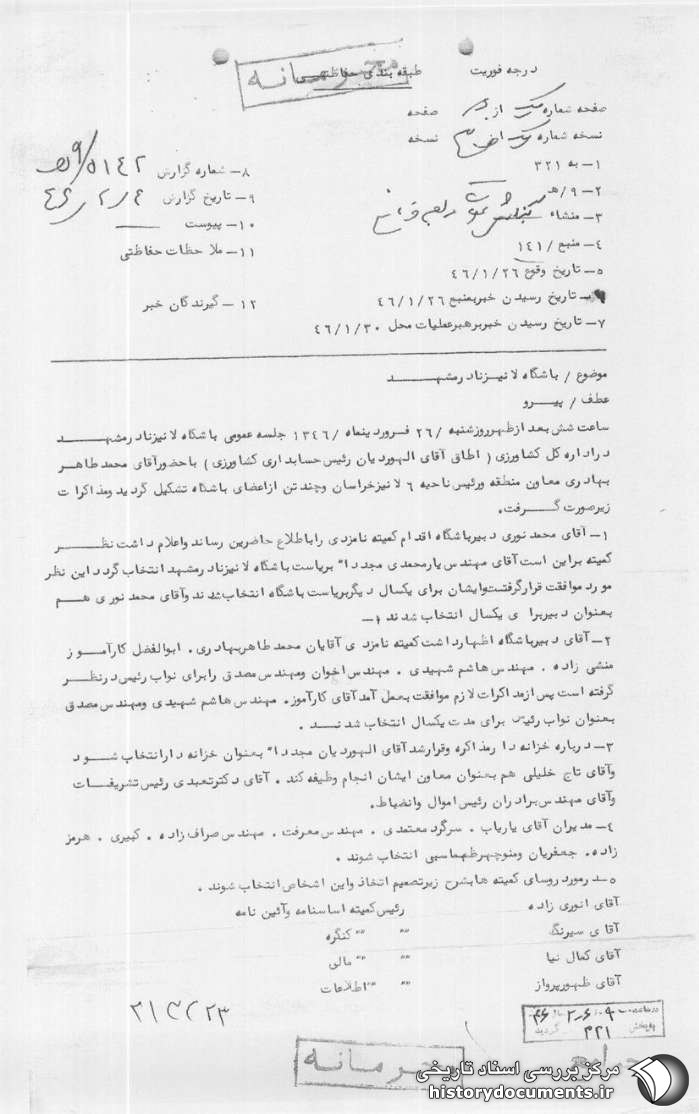 محرمانه
درجه فوریت
طبقه بندی حفاظتی
صفحه شماره یک از صفحه
نسخه شماره یک از نسخه
۱- به ۳۲۱
۲- ۹/هـ
۳- منشاء
۴- منبع /۱۴۱
۵- تاریخ وقوع ۴۶/۱/۲۶
تاریخ رسیدن خبربمنبع ۴۶/۱/۲۶
۷- تاریخ رسیدن خبربرهبرعملیات محل ۴۶/۱/۳۰
۸- شماره گزارش ۵۱۴۲/۹هـ
۹- تاریخ گزارش ۴۶/۲/۴
۱۰- پیوست
۱۱- ملاحظات حفاظتی
۱۲- گیرندگان خبر
موضوع / باشگاه لاینزنادرمشهد
عطف / پیرو
ساعت شش بعد ازظهرروزشنبه /۲۶ فروردینماه /۱۳۴۶ جلسه عمومی باشگاه لاینزنادرمشهد
دراداره کل کشاورزی ( اطاق آقای الهوردیان رئیس حسابداری کشاورزی ) باحضورآقای محمدطاهر
بهادری معاون منطقه ورئیس ناحیه ٦ لاینزخراسان وچندتن ازاعضای باشگاه تشکیل گردید ومذاکرات
زیرصورت گرفت.
۱- آقای محمد نوری دبیرباشگاه اقدام کمیته نامزدی راباطلاع حاضرین رساند واعلام داشت نظر
کمیته براین است آقای مهندس یارمحمدی مجددا" بریاست باشگاه لاینزنادرمشهد انتخاب گردد این نظر
مورد موافقت قرارگرفت وایشان برای یکسال دیگربریاست باشگاه انتخاب شدند وآقای محمد نوری هم
بعنوان دبیربرا ی یکسال انتخاب شدند -
۲- آقای دبیرباشگاه اظهارداشت کمیته نامزد ی آقایان محمد طاهربهادری. ابوالفضل کارآموز
منشی زاده . مهندس هاشم شهیدی . مهندس اخوان ومهندس مصدق رابرای نواب رئیس درنظر
گرفته است پس ازمذاکرات لازم موافقت بعمل آمد آقای کارآموز. مهندس هاشم شهیدی ومهندس مصدق
بعنوان نواب رئیس برای مدت یکسال انتخاب شدند .
۳- درباره خزانه دا رمذاکره وقرارشد آقای الهوردیان مجددا" بعنوان خزانه دارانتخاب شود
وآقای تاج خلیلی هم بعنوان معاون ایشان انجام وظیفه کند . آقای دکترتعبدی رئیس تشریفات
وآقای مهندس برادران رئیس اموال وانضباط.
٤- مدیران آقای یاریاب . سرگرد معتمدی . مهندس معرفت . مهندس صراف زاده . کبیری . هرمز
زاده. جعفریان ومنوچهرطهماسبی انتخاب شوند .
۵- درمورد روسای کمیته هابشرح زیرتصمیم اتخاذ واین اشخاص انتخاب شوند .
آقای انوری زاده رئیس کمیته اساسنامه وآئین نامه
آقا ی سیرنگ " " " " کنگره
آقای کمال نیا " " " " مالی
آقای ظهورپرواز " " " " اطلاعات
۴۶/۲/۹
بایگانی ۳۲۱ گردید
محرمانه
مرکز بررسی اسناد تاریخی
historydocuments.ir